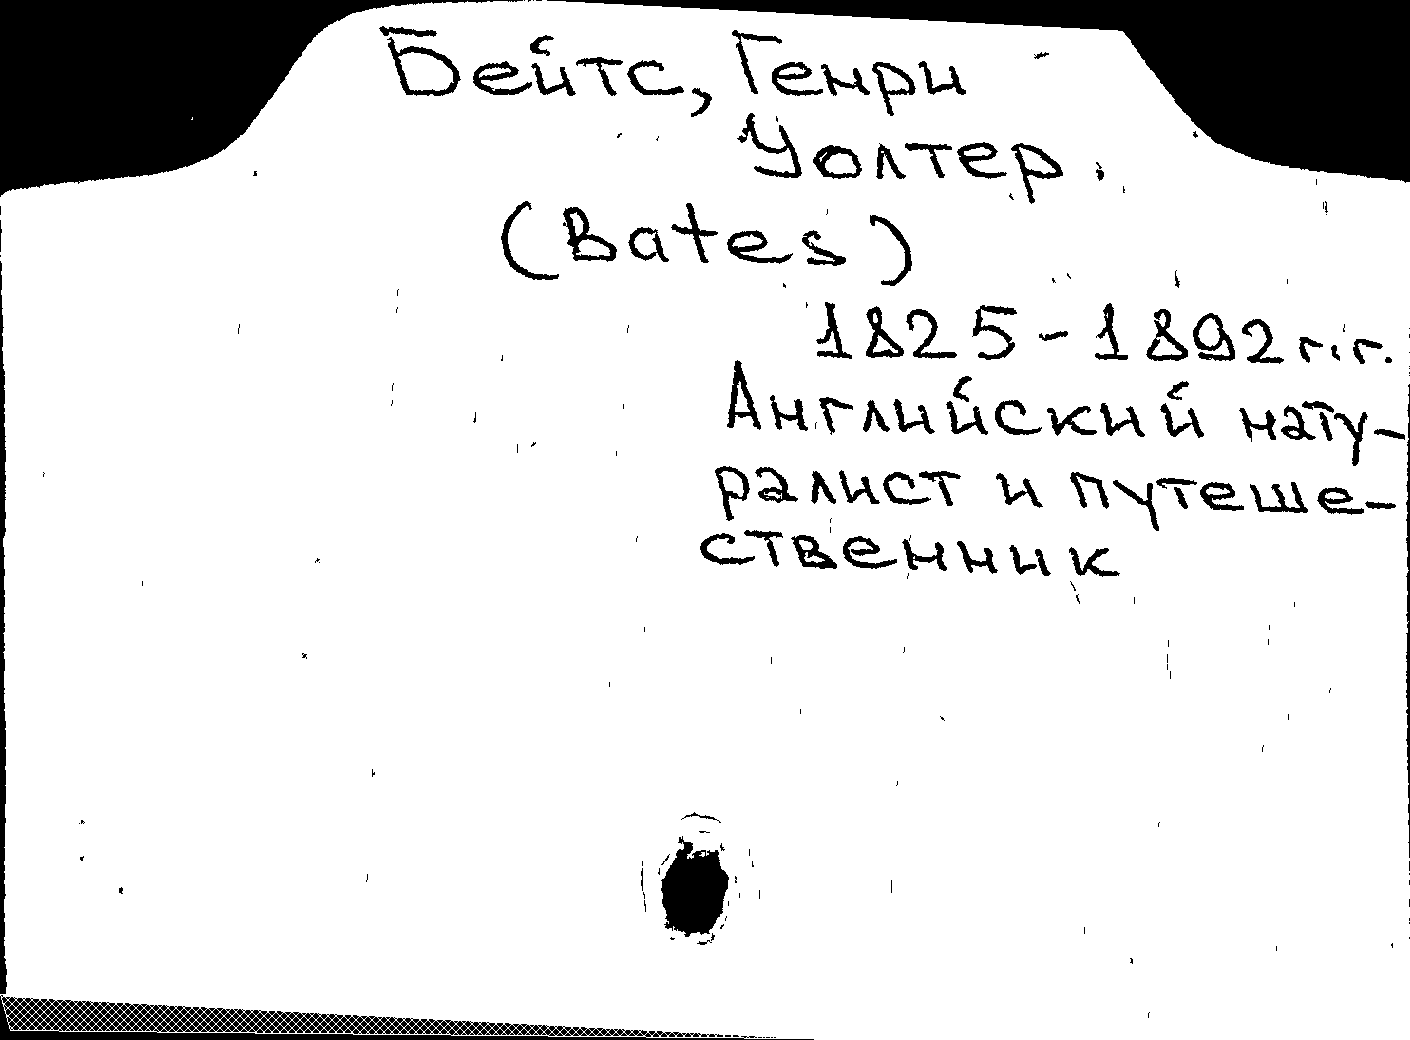 Бейтс, Генри
Уолтер.
(Bates)
1825-1892 г.г.
Английский нату-
ралист и путеше-
ственник